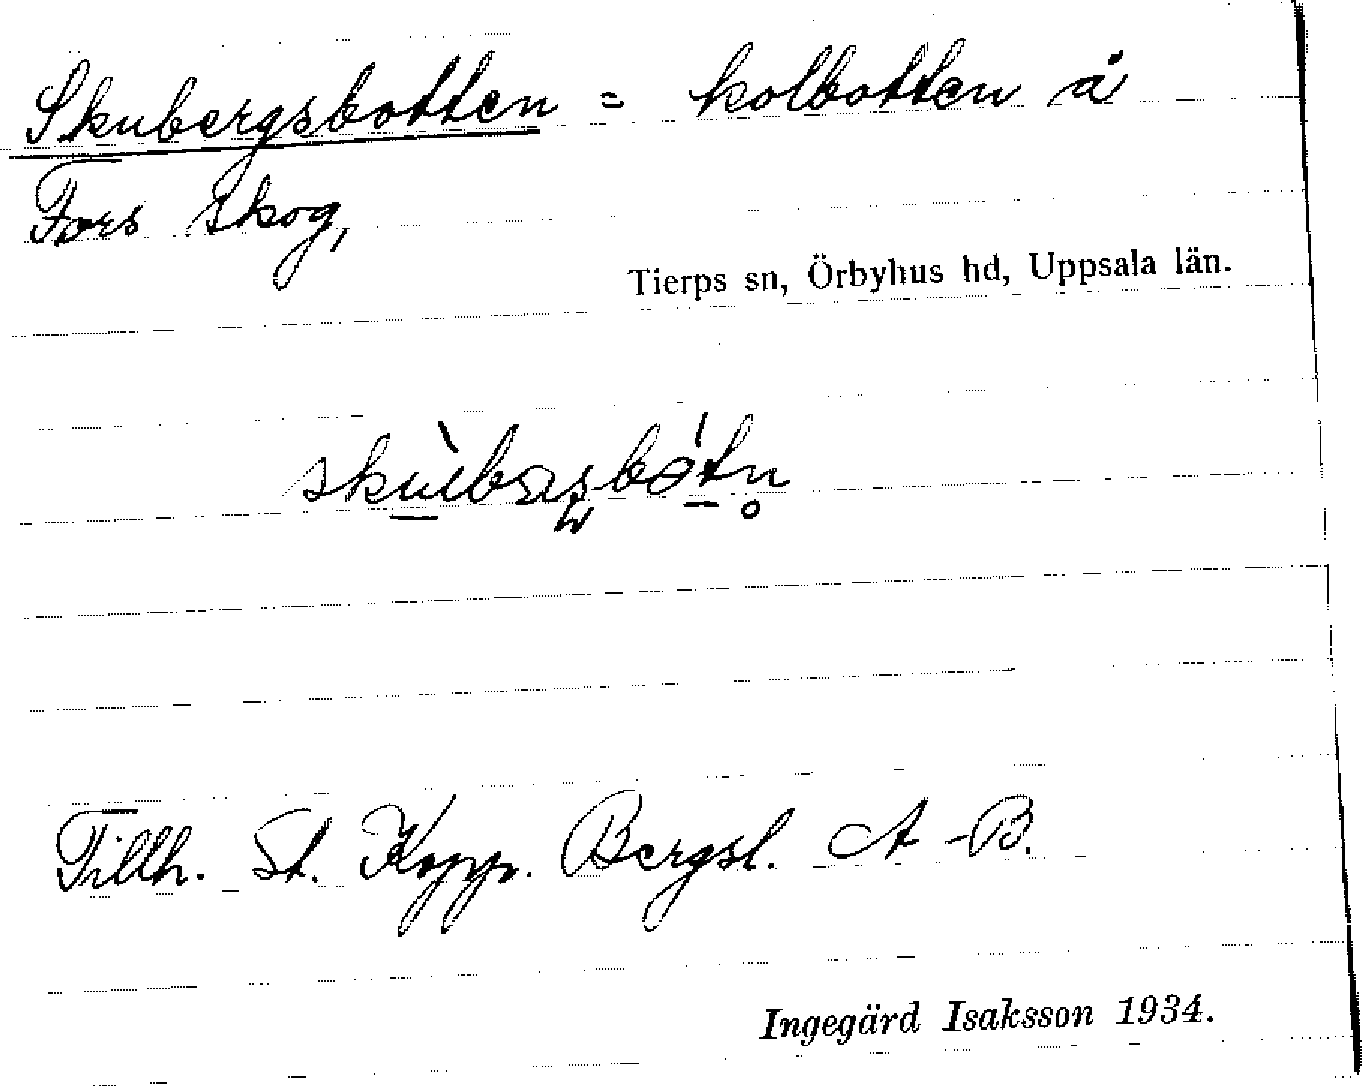 Skubergsbotten = kolbotten å
Fors skog,
Tierps sn, Örbyhus hd, Uppsala län.
Tillh. St. Kopp. Bergsl. A-B.
Ingegärd Isaksson 1934.